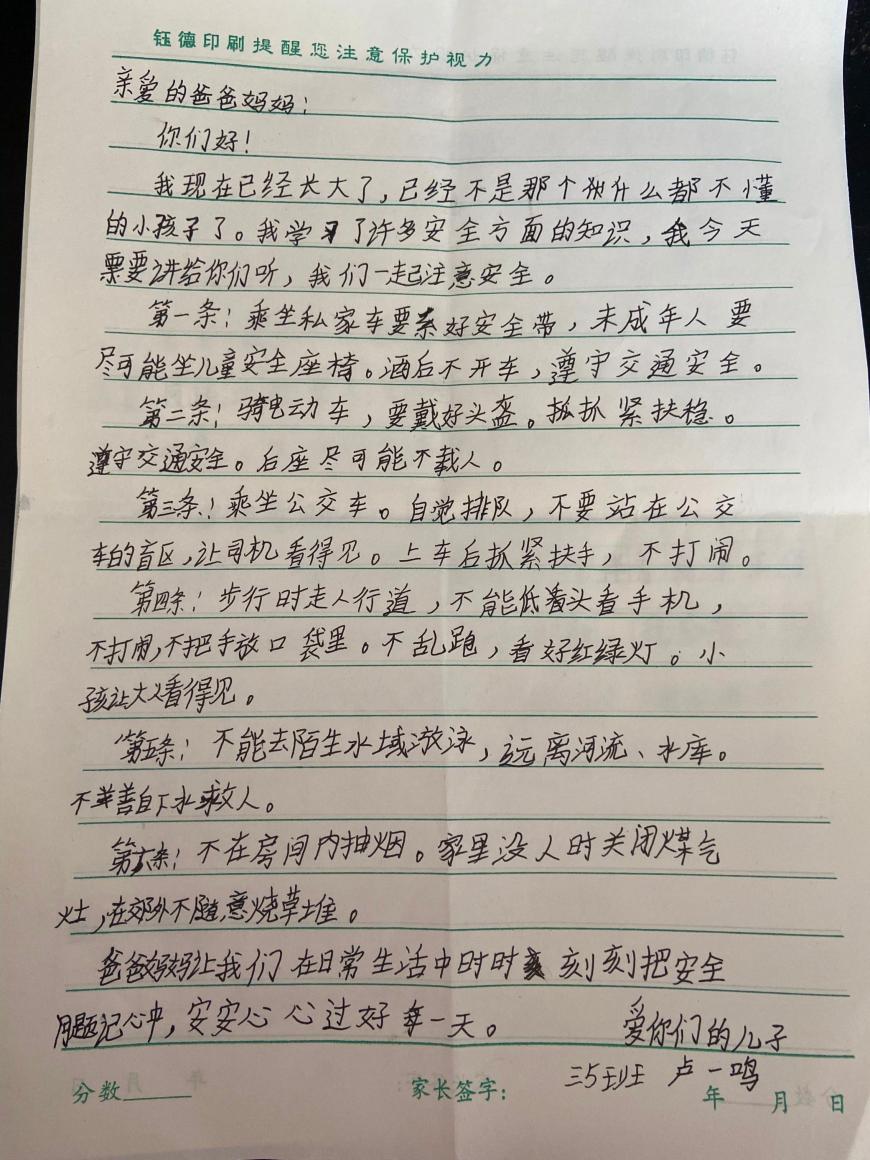 钰德印刷提醒您注意保护视力
亲爱的爸爸妈妈：
你们好！
我现在已经长大了，已经不是那个什么都不懂
的小孩子了。我学习了许多安全方面的知识，我今天
要讲给你们听，我们一起注意安全。
第一条：乘坐私家车要系好安全带，未成年人要
尽可能坐儿童安全座椅。酒后不开车，遵守交通安全。
第二条：骑电动车，要戴好头盔。抓紧扶稳。
遵守交通安全。后座尽可能不载人。
第三条：乘坐公交车。自觉排队，不要站在公交
车的盲区，让司机看得见。上车后抓紧扶手，不打闹。
第四条：步行时走人行道，不能低着头看手机，
不打闹，不把手放口袋里。不乱跑，看好红绿灯。小
孩让大人看得见。
第五条：不能去陌生水域游泳，远离河流、水库。
不擅自下水救人。
第六条：不在房间内抽烟。家里没人时关闭煤气
灶，在郊外不随意烧草堆。
爸爸妈妈让我们在日常生活中时时刻刻把安全
问题记心中，安安心心过好每一天。
爱你们的儿子
三5班 卢一鸣
分数 家长签字： 年 月 日